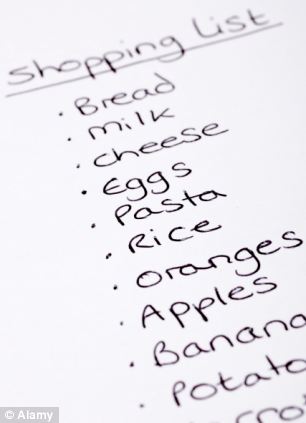 Shopping List
• Bread
• Milk
• Cheese
• Eggs
• Pasta
• Rice
• Oranges
• Apples
• Banana
• Potato
© Alamy